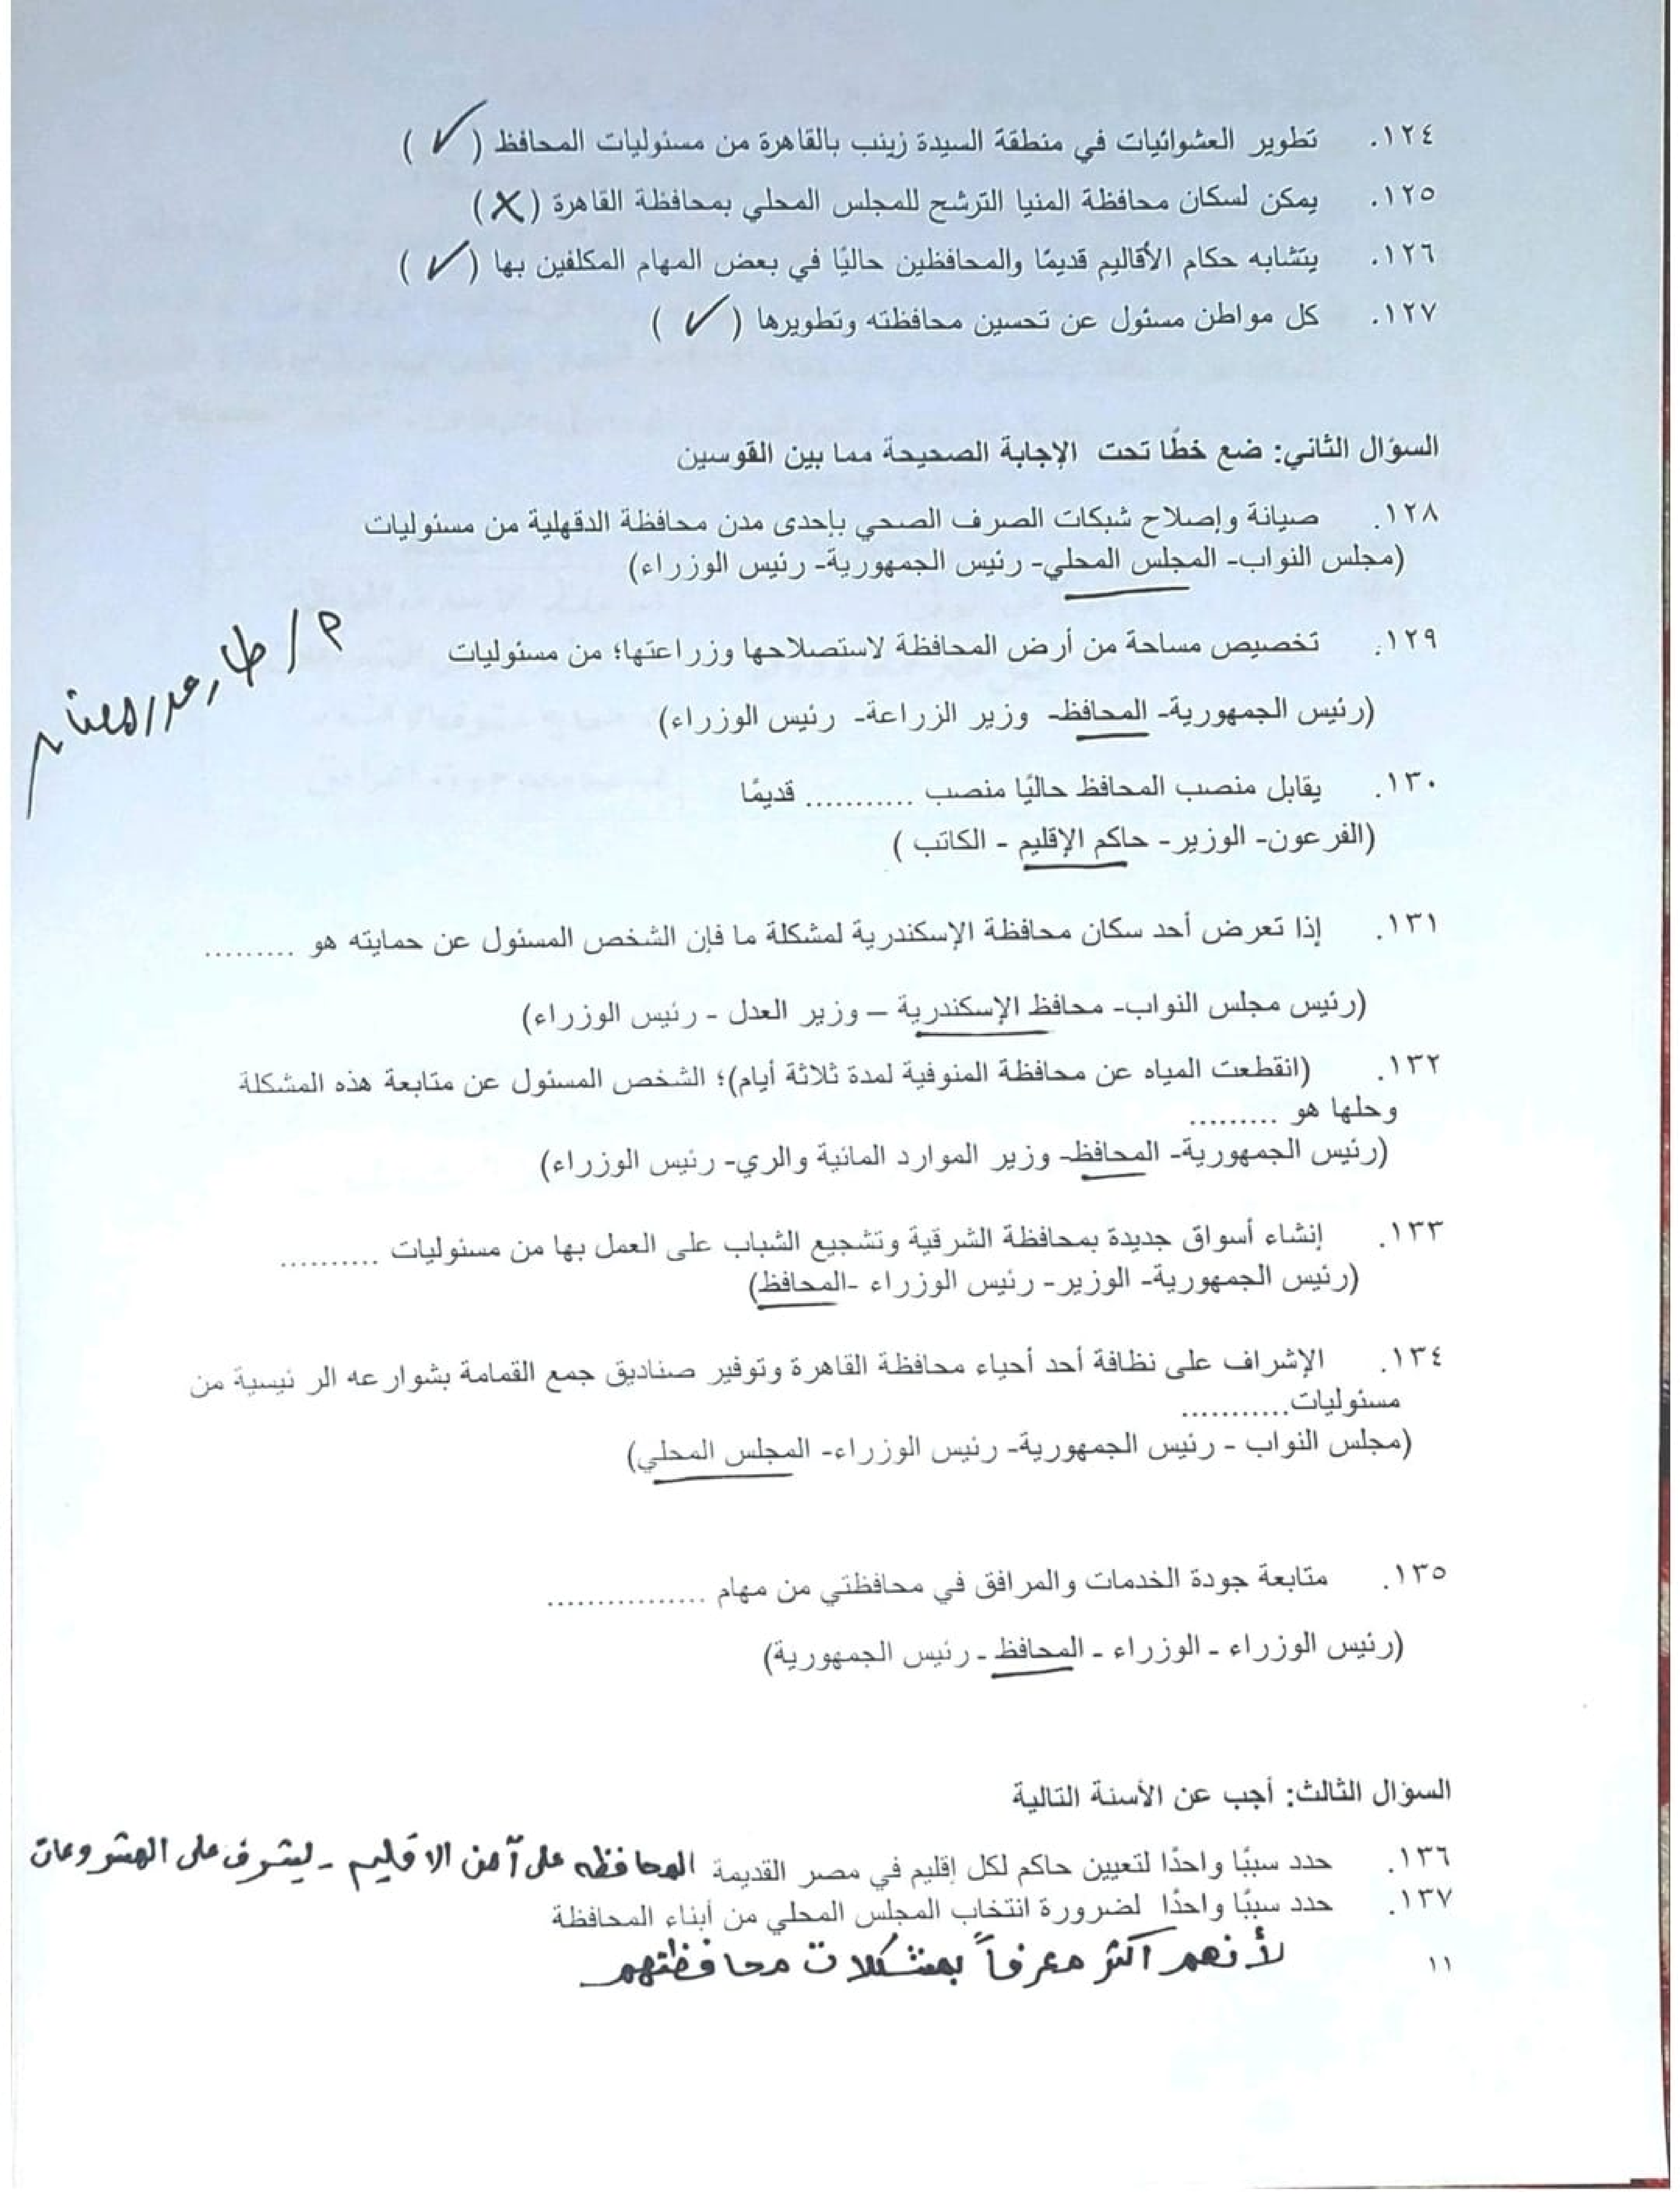 ١٢٤. تطوير العشوائيات في منطقة السيدة زينب بالقاهرة من مسئوليات المحافظ ( ✓ )
١٢٥. يمكن لسكان محافظة المنيا الترشح للمجلس المحلي بمحافظة القاهرة (X)
١٢٦. يتشابه حكام الأقاليم قديمًا والمحافظين حاليًا في بعض المهام المكلفين بها ( ✓ )
١٢٧. كل مواطن مسئول عن تحسين محافظته وتطويرها ( ✓ )
السؤال الثاني: ضع خطًا تحت الإجابة الصحيحة مما بين القوسين
١٢٨. صيانة وإصلاح شبكات الصرف الصحي بإحدى مدن محافظة الدقهلية من مسئوليات
(مجلس النواب- المجلس المحلي- رئيس الجمهورية- رئيس الوزراء)
١٢٩. تخصيص مساحة من أرض المحافظة لاستصلاحها وزراعتها؛ من مسئوليات
(رئيس الجمهورية- المحافظ- وزير الزراعة- رئيس الوزراء)
١٣٠. يقابل منصب المحافظ حاليًا منصب ........... قديمًا
(الفرعون- الوزير- حاكم الإقليم - الكاتب )
١٣١. إذا تعرض أحد سكان محافظة الإسكندرية لمشكلة ما فإن الشخص المسئول عن حمايته هو .........
(رئيس مجلس النواب- محافظ الإسكندرية – وزير العدل - رئيس الوزراء)
١٣٢. (انقطعت المياه عن محافظة المنوفية لمدة ثلاثة أيام)؛ الشخص المسئول عن متابعة هذه المشكلة
وحلها هو .........
(رئيس الجمهورية- المحافظ- وزير الموارد المائية والري- رئيس الوزراء)
١٣٣. إنشاء أسواق جديدة بمحافظة الشرقية وتشجيع الشباب على العمل بها من مسئوليات ..........
(رئيس الجمهورية- الوزير- رئيس الوزراء -المحافظ)
١٣٤. الإشراف على نظافة أحد أحياء محافظة القاهرة وتوفير صناديق جمع القمامة بشوارعه الرئيسية من
مسئوليات...........
(مجلس النواب - رئيس الجمهورية- رئيس الوزراء- المجلس المحلي)
١٣٥. متابعة جودة الخدمات والمرافق في محافظتي من مهام ................
(رئيس الوزراء - الوزراء - المحافظ - رئيس الجمهورية)
السؤال الثالث: أجب عن الأسئلة التالية
١٣٦. حدد سببًا واحدًا لتعيين حاكم لكل إقليم في مصر القديمة المحافظه على أمن الاقليم - ليشرف على المشروعات
١٣٧. حدد سببًا واحدًا لضرورة انتخاب المجلس المحلي من أبناء المحافظة
لأنهم اكثر معرفاً بمشكلات محافظتهم
١١